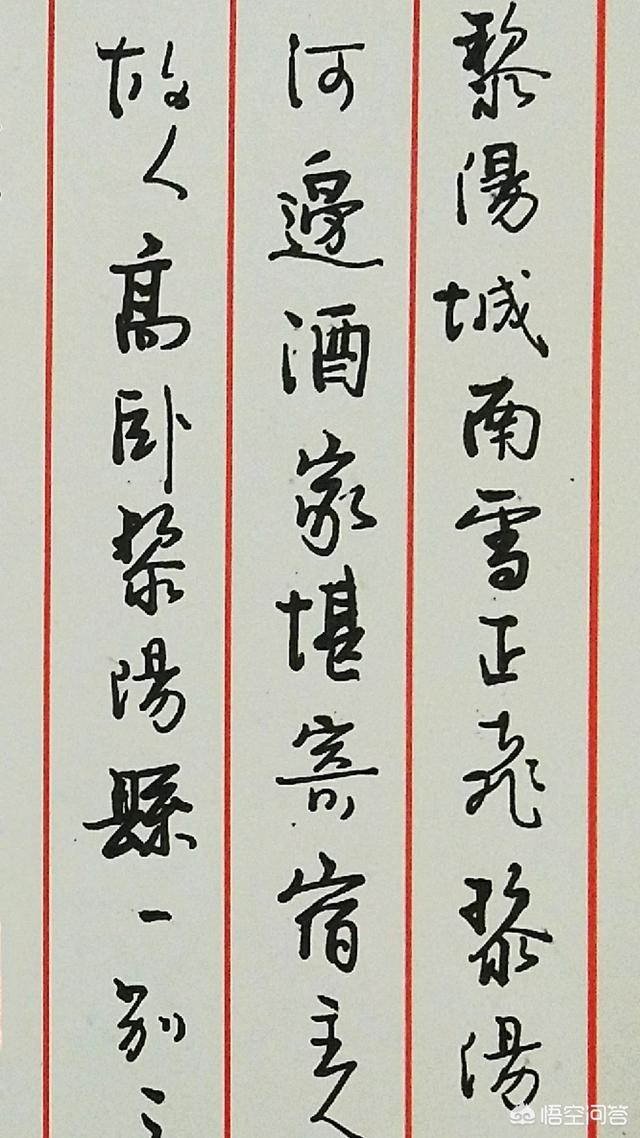 黎陽城南雪正飛黎陽
河邊酒家堪寄宿主人
故人高臥黎陽縣一別
悟空问答